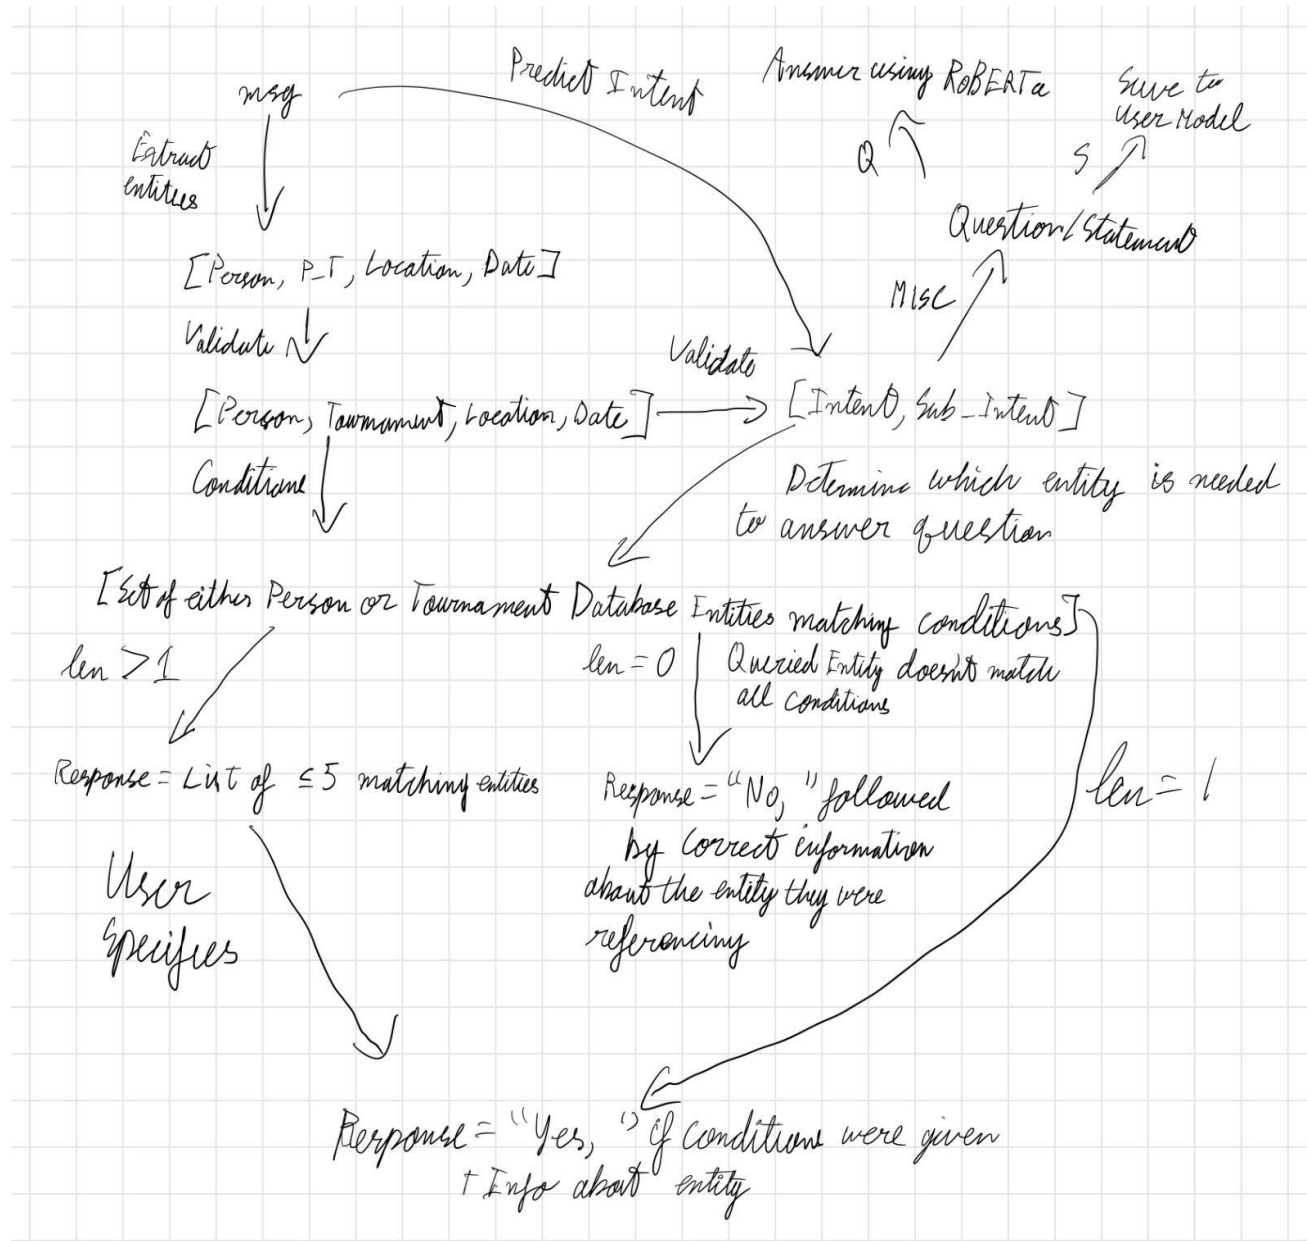 msg
Predict Intent
Answer using RoBERTa
Save to
User Model
Extract
entities
Q
S
Question/Statement
[Person, P_T, Location, Date]
MISC
Validate
Validate
[Person, Tournament, Location, Date]
[Intent, Sub_Intent]
Conditions
Determine which entity is needed
to answer question
[Set of either Person or Tournament Database Entities matching conditions]
len > 1
len = 0
Queried Entity doesn't match
all conditions
Response = List of ≤5 matching entities
Response = "No, " followed
by correct information
about the entity they were
referencing
len = 1
User
Specifies
Response = "Yes, " if conditions were given
+ Info about entity